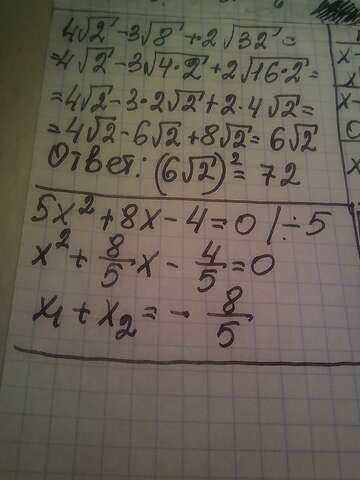 4√2 - 3√8 + 2√32 =
= 4√2 - 3√4·2 + 2√16·2 =
= 4√2 - 3·2√2 + 2·4√2 =
= 4√2 - 6√2 + 8√2 = 6√2
Ответ: (6√2)² = 72
5x² + 8x - 4 = 0 | ÷ 5
x² + 8/5 x - 4/5 = 0
x₁ + x₂ = - 8/5